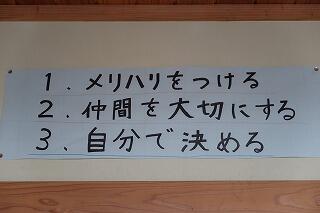 1.メリハリをつける
2.仲間を大切にする
3.自分で決める